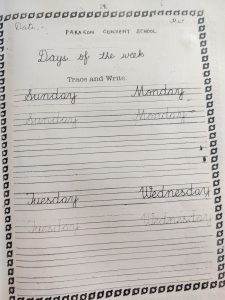 Date...
PARAGON CONVENT SCHOOL
Days of the week
Trace and Write
Sunday Monday
Sunday Monday
Tuesday Wednesday
Tuesday Wednesday